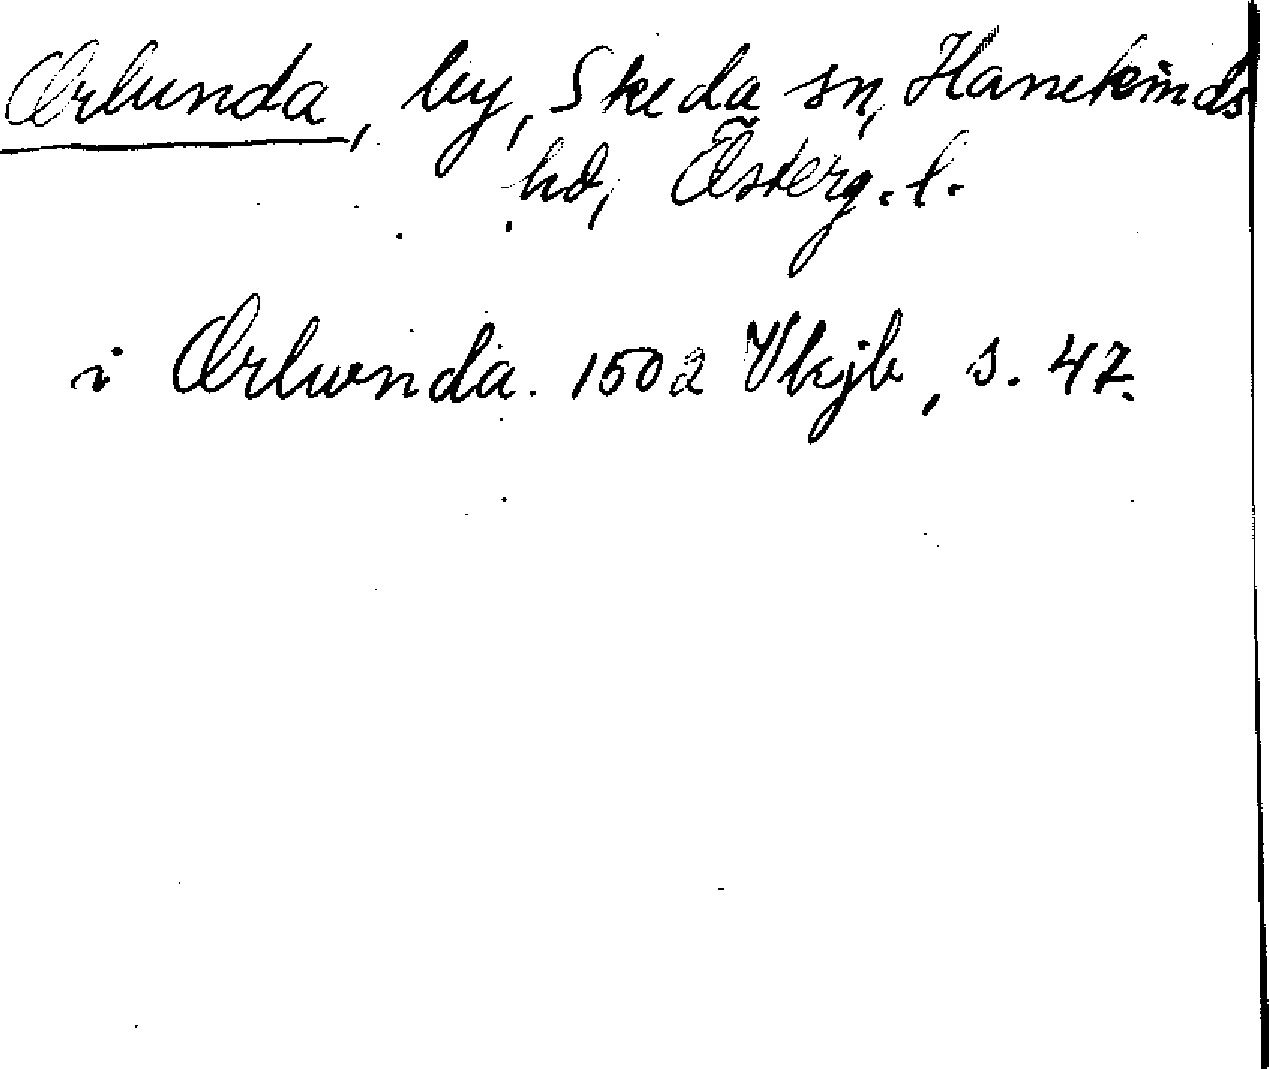 Orlunda, by, Skeda sn, Hanekinds
hd, Österg. l.
i Orlwnda. 1502 Vkjb, s. 47.